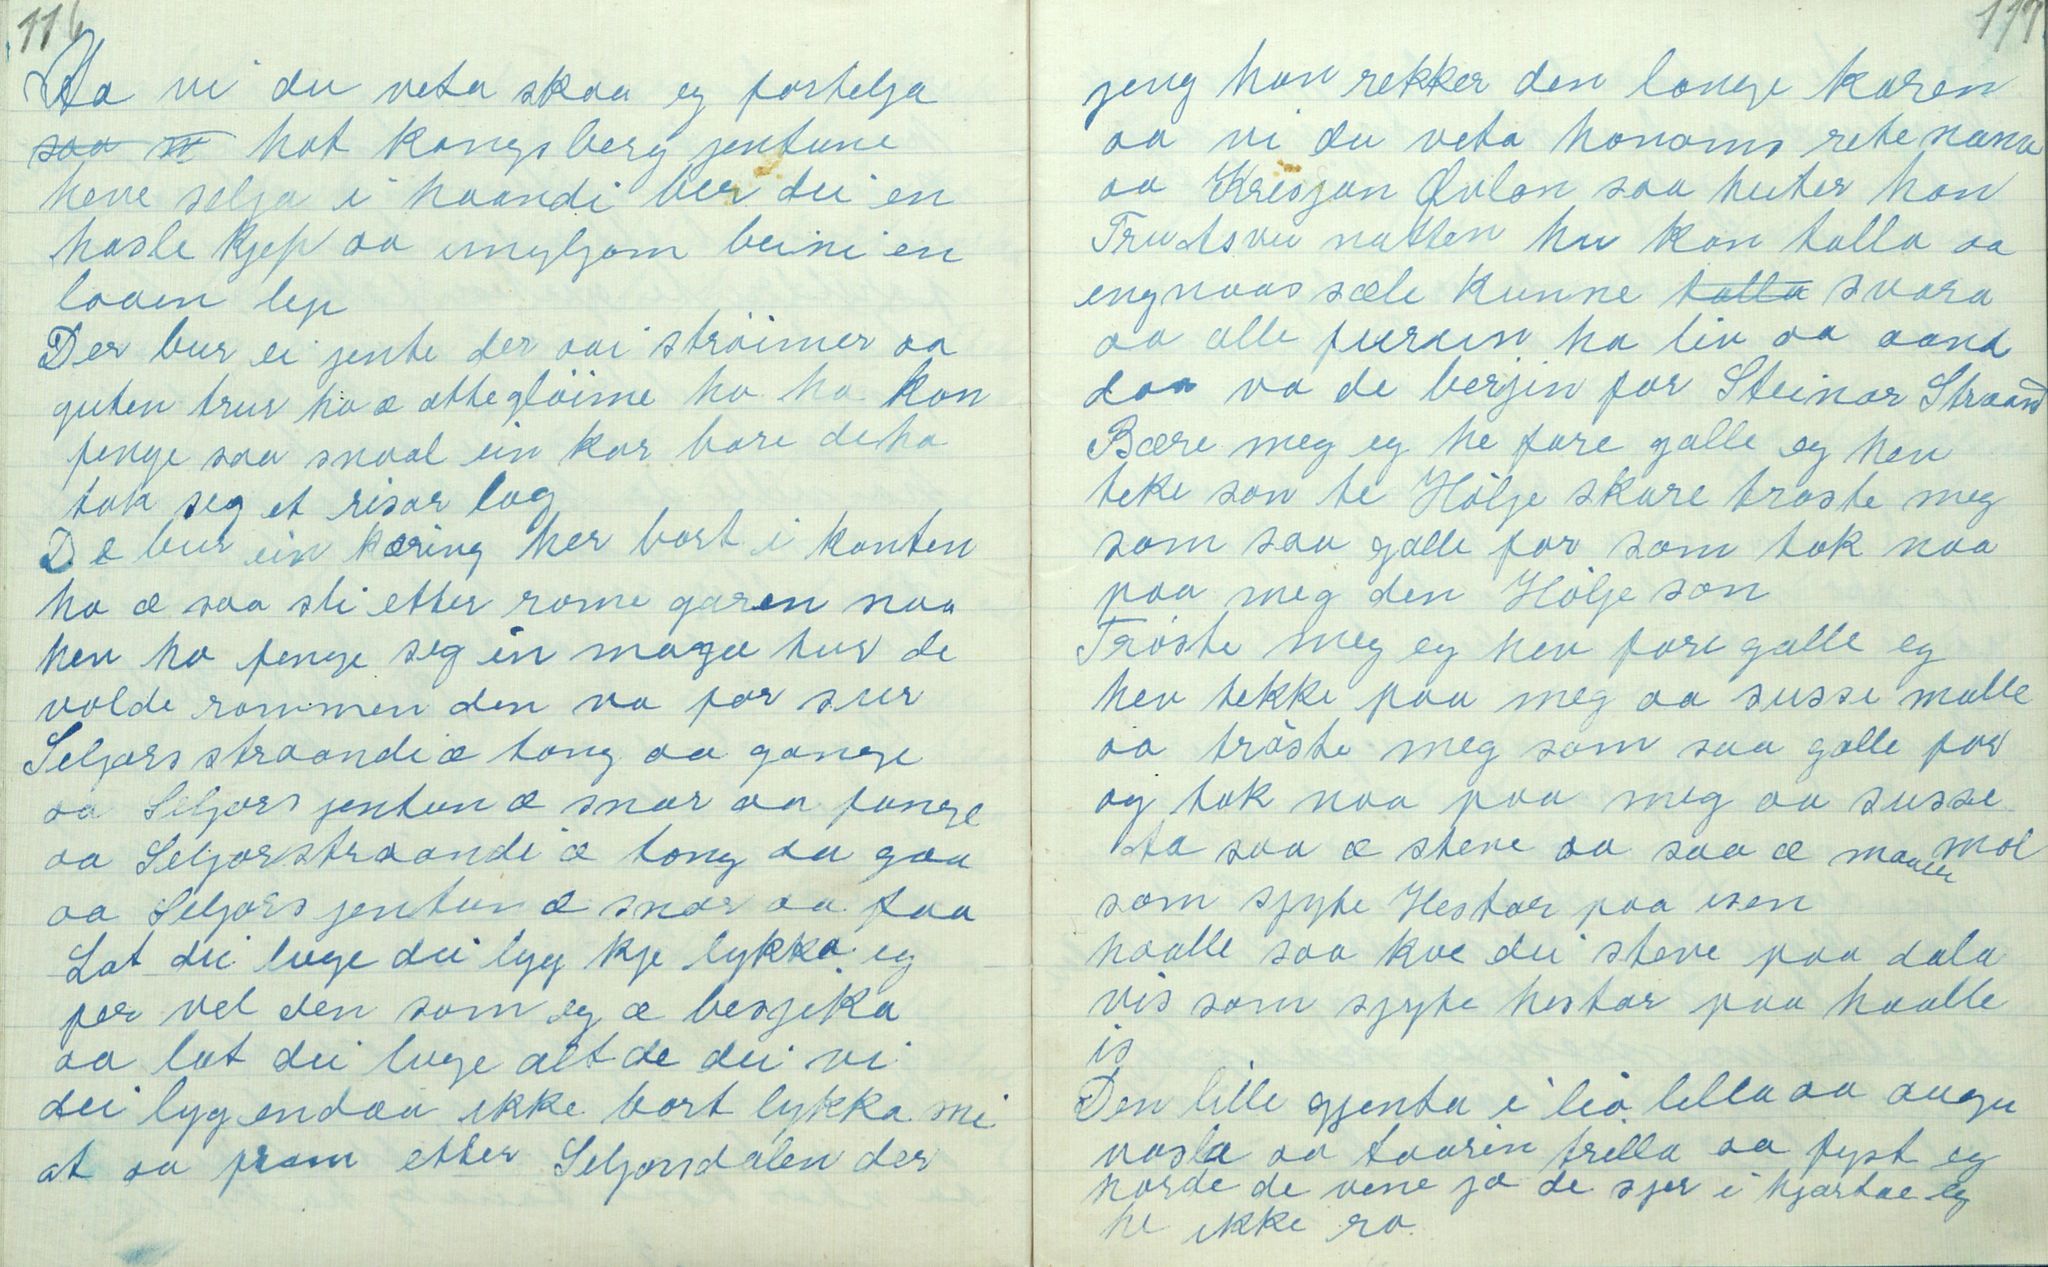 116
Aa vi du veta skaa eg fortelja
saa hot kongsberg jentune
heve selja i haandi ber dei en
hasle kjep aa imyljom beini en
loaen lep
Der bur ei jente der aai ströimer aa
guten trur ho æ atteglöime ho ha kan
fenge saa snaal ein kar bare de ho
tok seg et risar lag
D æ bur ein kæring her bort i kanten
ho æ saa sli etter rome garen naa
hev ho fenge seg in maga tur de
volde rommen den va for sur
Seljors straandi æ tong aa gange
aa Seljors jentun æ snar aa fange
aa Seljorstraandi æ tong aa gaa
aa Seljors jentun æ snar aa faa
Lat dei luge dei lyg kje lykka eg
fer vel den som eg æ besjika
aa lat dei luge alt de dei vi
dei lyg endaa ikke bort lykka mi
at aa fram etter Seljorsdalen der
117
jeng han rekker den lange karen
aa vi du veta honoms rete namn
aa Kresjan Qvlan saa heiter han
Trudsvei natten hu kan talla aa
engnaas sæle kunne talla svara
aa alle fururn ha liv aa aand
daa va de berjin for Steinar Straand
Bære meg eg he fare galle eg hev
teke son te Hölje skare traste meg
som saa galle for som tok naa
paa meg den Hölje son
Tröste meg eg hev fare galle eg
hev tekke paa meg aa susse malle
aa tröste meg som saa galle for
og tok naa paa meg aa susse
ta saa æ steve aa saa æ maaten mæl
som spyte Hestar paa isen
haalle saa kve dei steve paa dala
vis som spyte hestar paa haalle
is
Den lille gjenta i liö lilla aa augu
vasla aa taarin trilla aa fyst eg
horde de vene jo de sjer i hjartae eg
he ikke ro